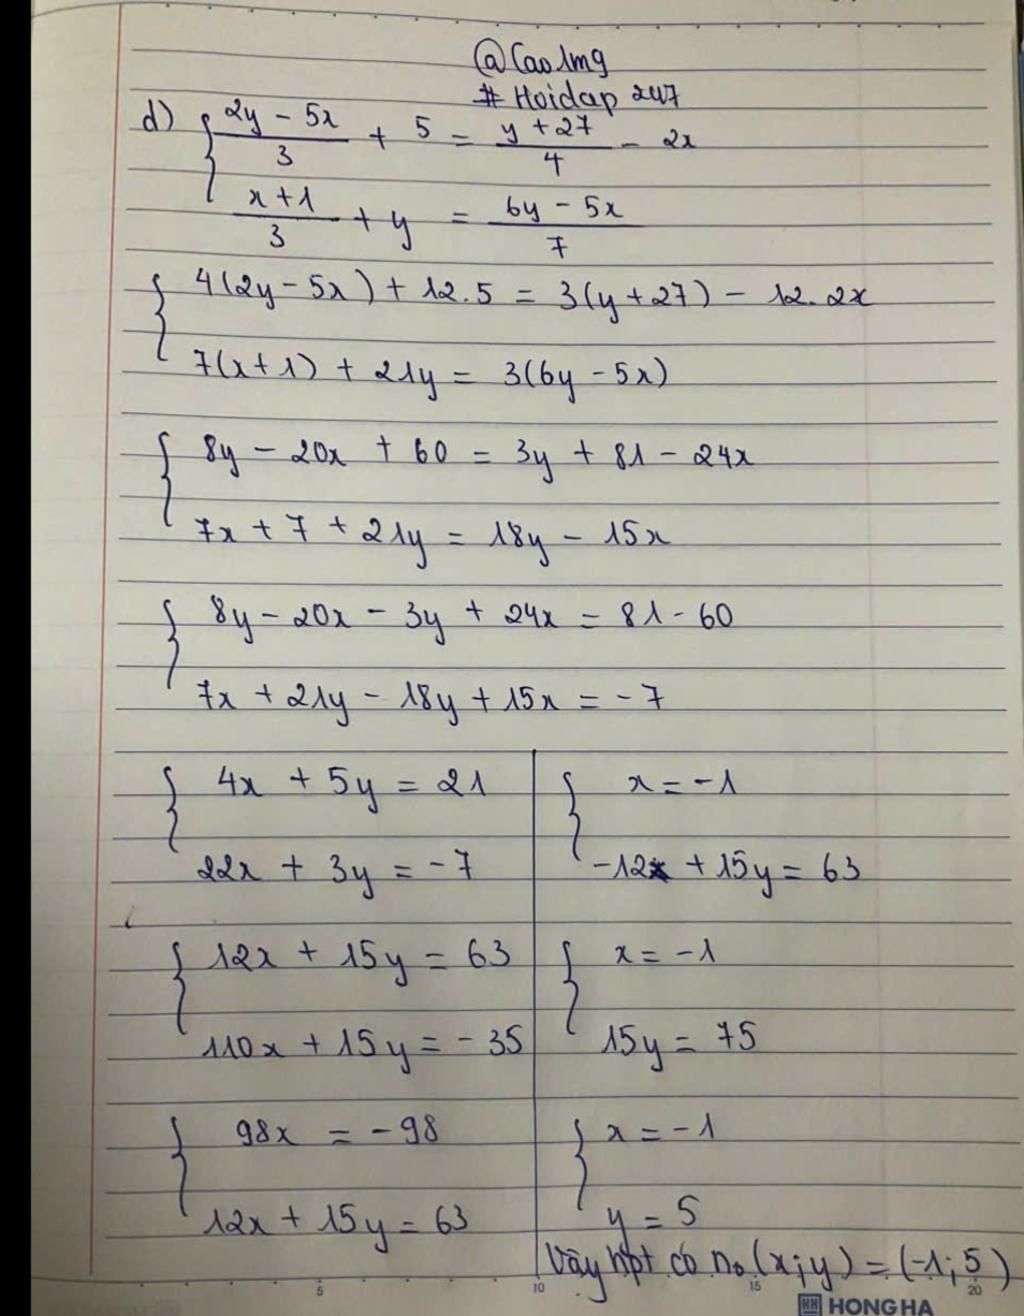 @Cao1mg
# Hoidap 247
d) { (2y - 5x)/3 + 5 = (y + 27)/4 - 2x
(x + 1)/3 + y = (6y - 5x)/7
{ 4(2y - 5x) + 12.5 = 3(y + 27) - 12.2x
7(x + 1) + 21y = 3(6y - 5x)
{ 8y - 20x + 60 = 3y + 81 - 24x
7x + 7 + 21y = 18y - 15x
{ 8y - 20x - 3y + 24x = 81 - 60
7x + 21y - 18y + 15x = -7
{ 4x + 5y = 21
22x + 3y = -7
{ 12x + 15y = 63
110x + 15y = -35
{ 98x = -98
12x + 15y = 63
{ x = -1
-12 + 15y = 63
{ x = -1
15y = 75
{ x = -1
y = 5
Vậy hpt có no (x;y) = (-1;5)
5 10 15 20
HH HONG HA